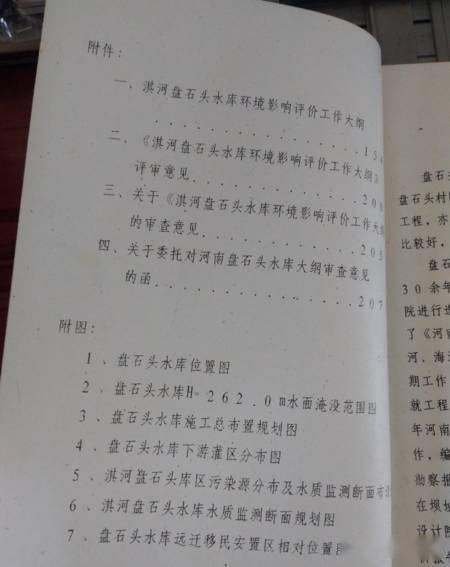 附件：
一、淇河盘石头水库环境影响评价工作大纲
...................15
二、《淇河盘石头水库环境影响评价工作大纲》
评审意见...............20
三、关于《淇河盘石头水库环境影响评价工作大纲
的审查意见..............205
四、关于委托对河南盘石头水库大纲审查意见
的函.................207
附图：
1、盘石头水库位置图
2、盘石头水库H=262.0m水面淹没范围图
3、盘石头水库施工总布置规划图
4、盘石头水库下游灌区分布图
5、淇河盘石头库区污染源分布及水质监测断面布
6、淇河盘石头水库水质监测断面规划图
7、盘石头水库远迁移民安置区相对位置
盘石
盘石头村
工程，亦
比较好，
盘石
30余年
院进行过
了《河南
河、海
期工作
就工程
年河南
作，编
勘察报
在坝址
设计院